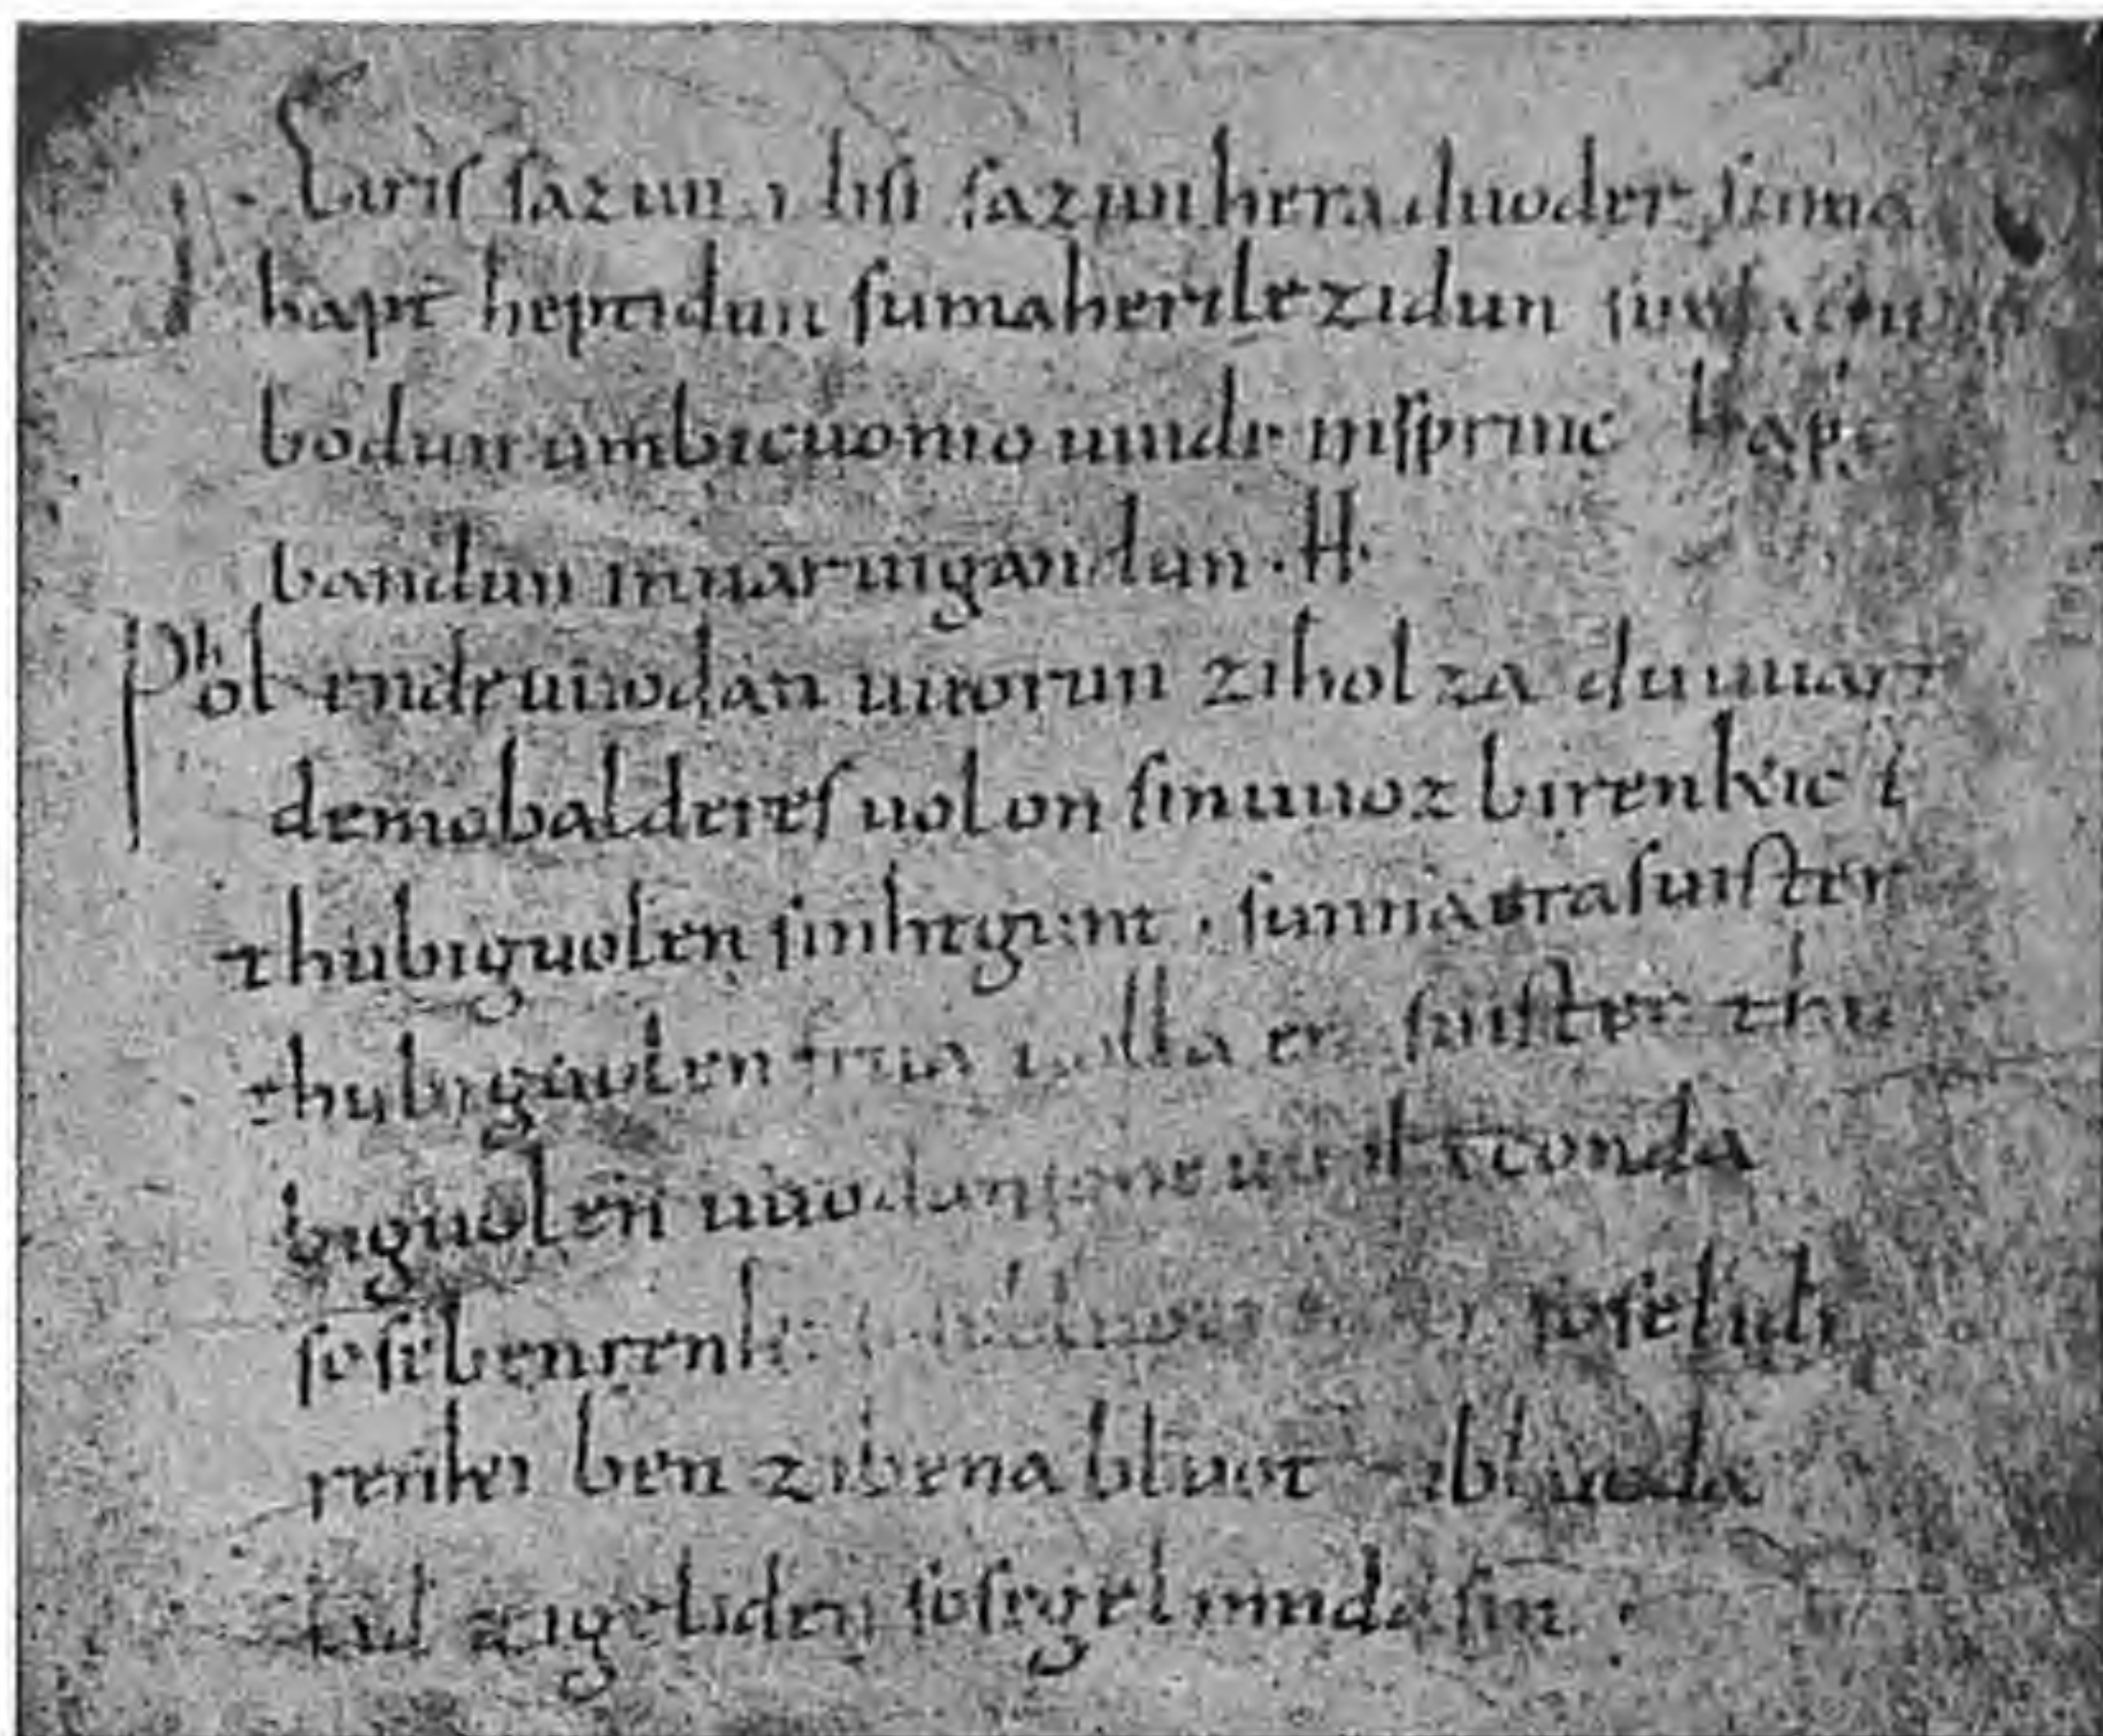 Eiris sazun idisi sazun hera duoder suma
hapt heptidun sumaherilezidun sumaclu
bodun umbicuonio uuidi insprinc hapt
bandun inuaruigandun · H·
Phol endeuuodan uuorun ziholza duuuart
demobalderesuolon sinuuoz birenkict
thubiguolen sinhtgunt · sunnaerasuister
thubiguolen friia uolla era suister thu
biguolen uuodan souueliconda
sosebenrenki sosebluotrenki soselidi
renki ben zibena bluot zibluoda
lid zigeliden sosegelimidasin ·